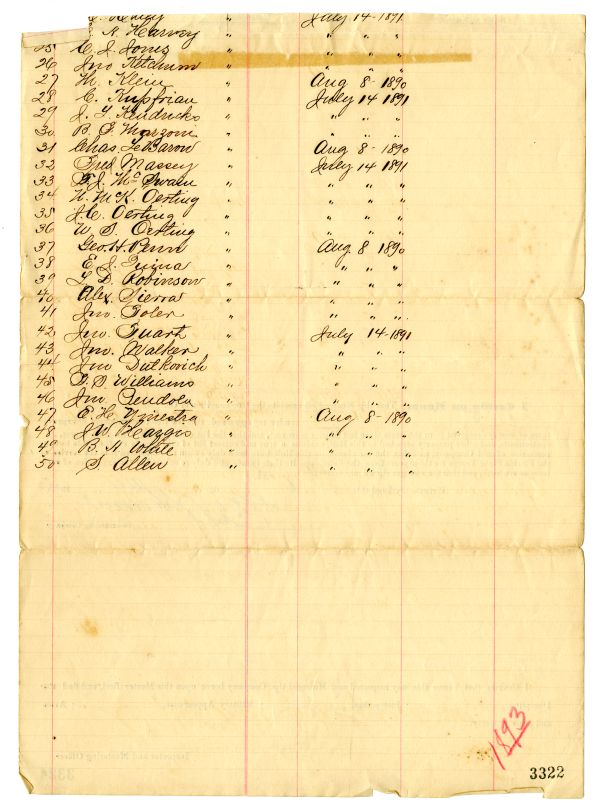 July 14-1891
Harvey " " " "
25 C. J. Jones " " " "
26 Jno Ketchum " " " "
27 M. Klein " Aug 8-1890
28 C. Kupfrian " July 14 1891
29 J. T. Kendricks " " " "
30 B. S. " " " "
31 Chas. LeBaron " Aug 8-1890
32 Fred Massey " July 14-1891
33 J. McSwain " " " "
34 McK. Oerting " " " "
35 J. C. Oerting " " " "
36 W. S. Oerting " " " "
37 Geo. H. Penn " Aug 8 1890
38 E. J. Quina " " " "
39 L. D. Robinson " " " "
40 Alex Sierra " " " "
41 Jno. Soler " " " "
42 Jno. " July 14-1891
43 Jno. Walker " " " "
44 Jno Dutkovich " " " "
45 D. D. Williams " " " "
46 Jno. Lendola " " " "
47 E. H. Yniestra " Aug 8-1890
48 J. W. " " " "
49 B. H. White " " " "
50 S Allen " " " "
1893
3322